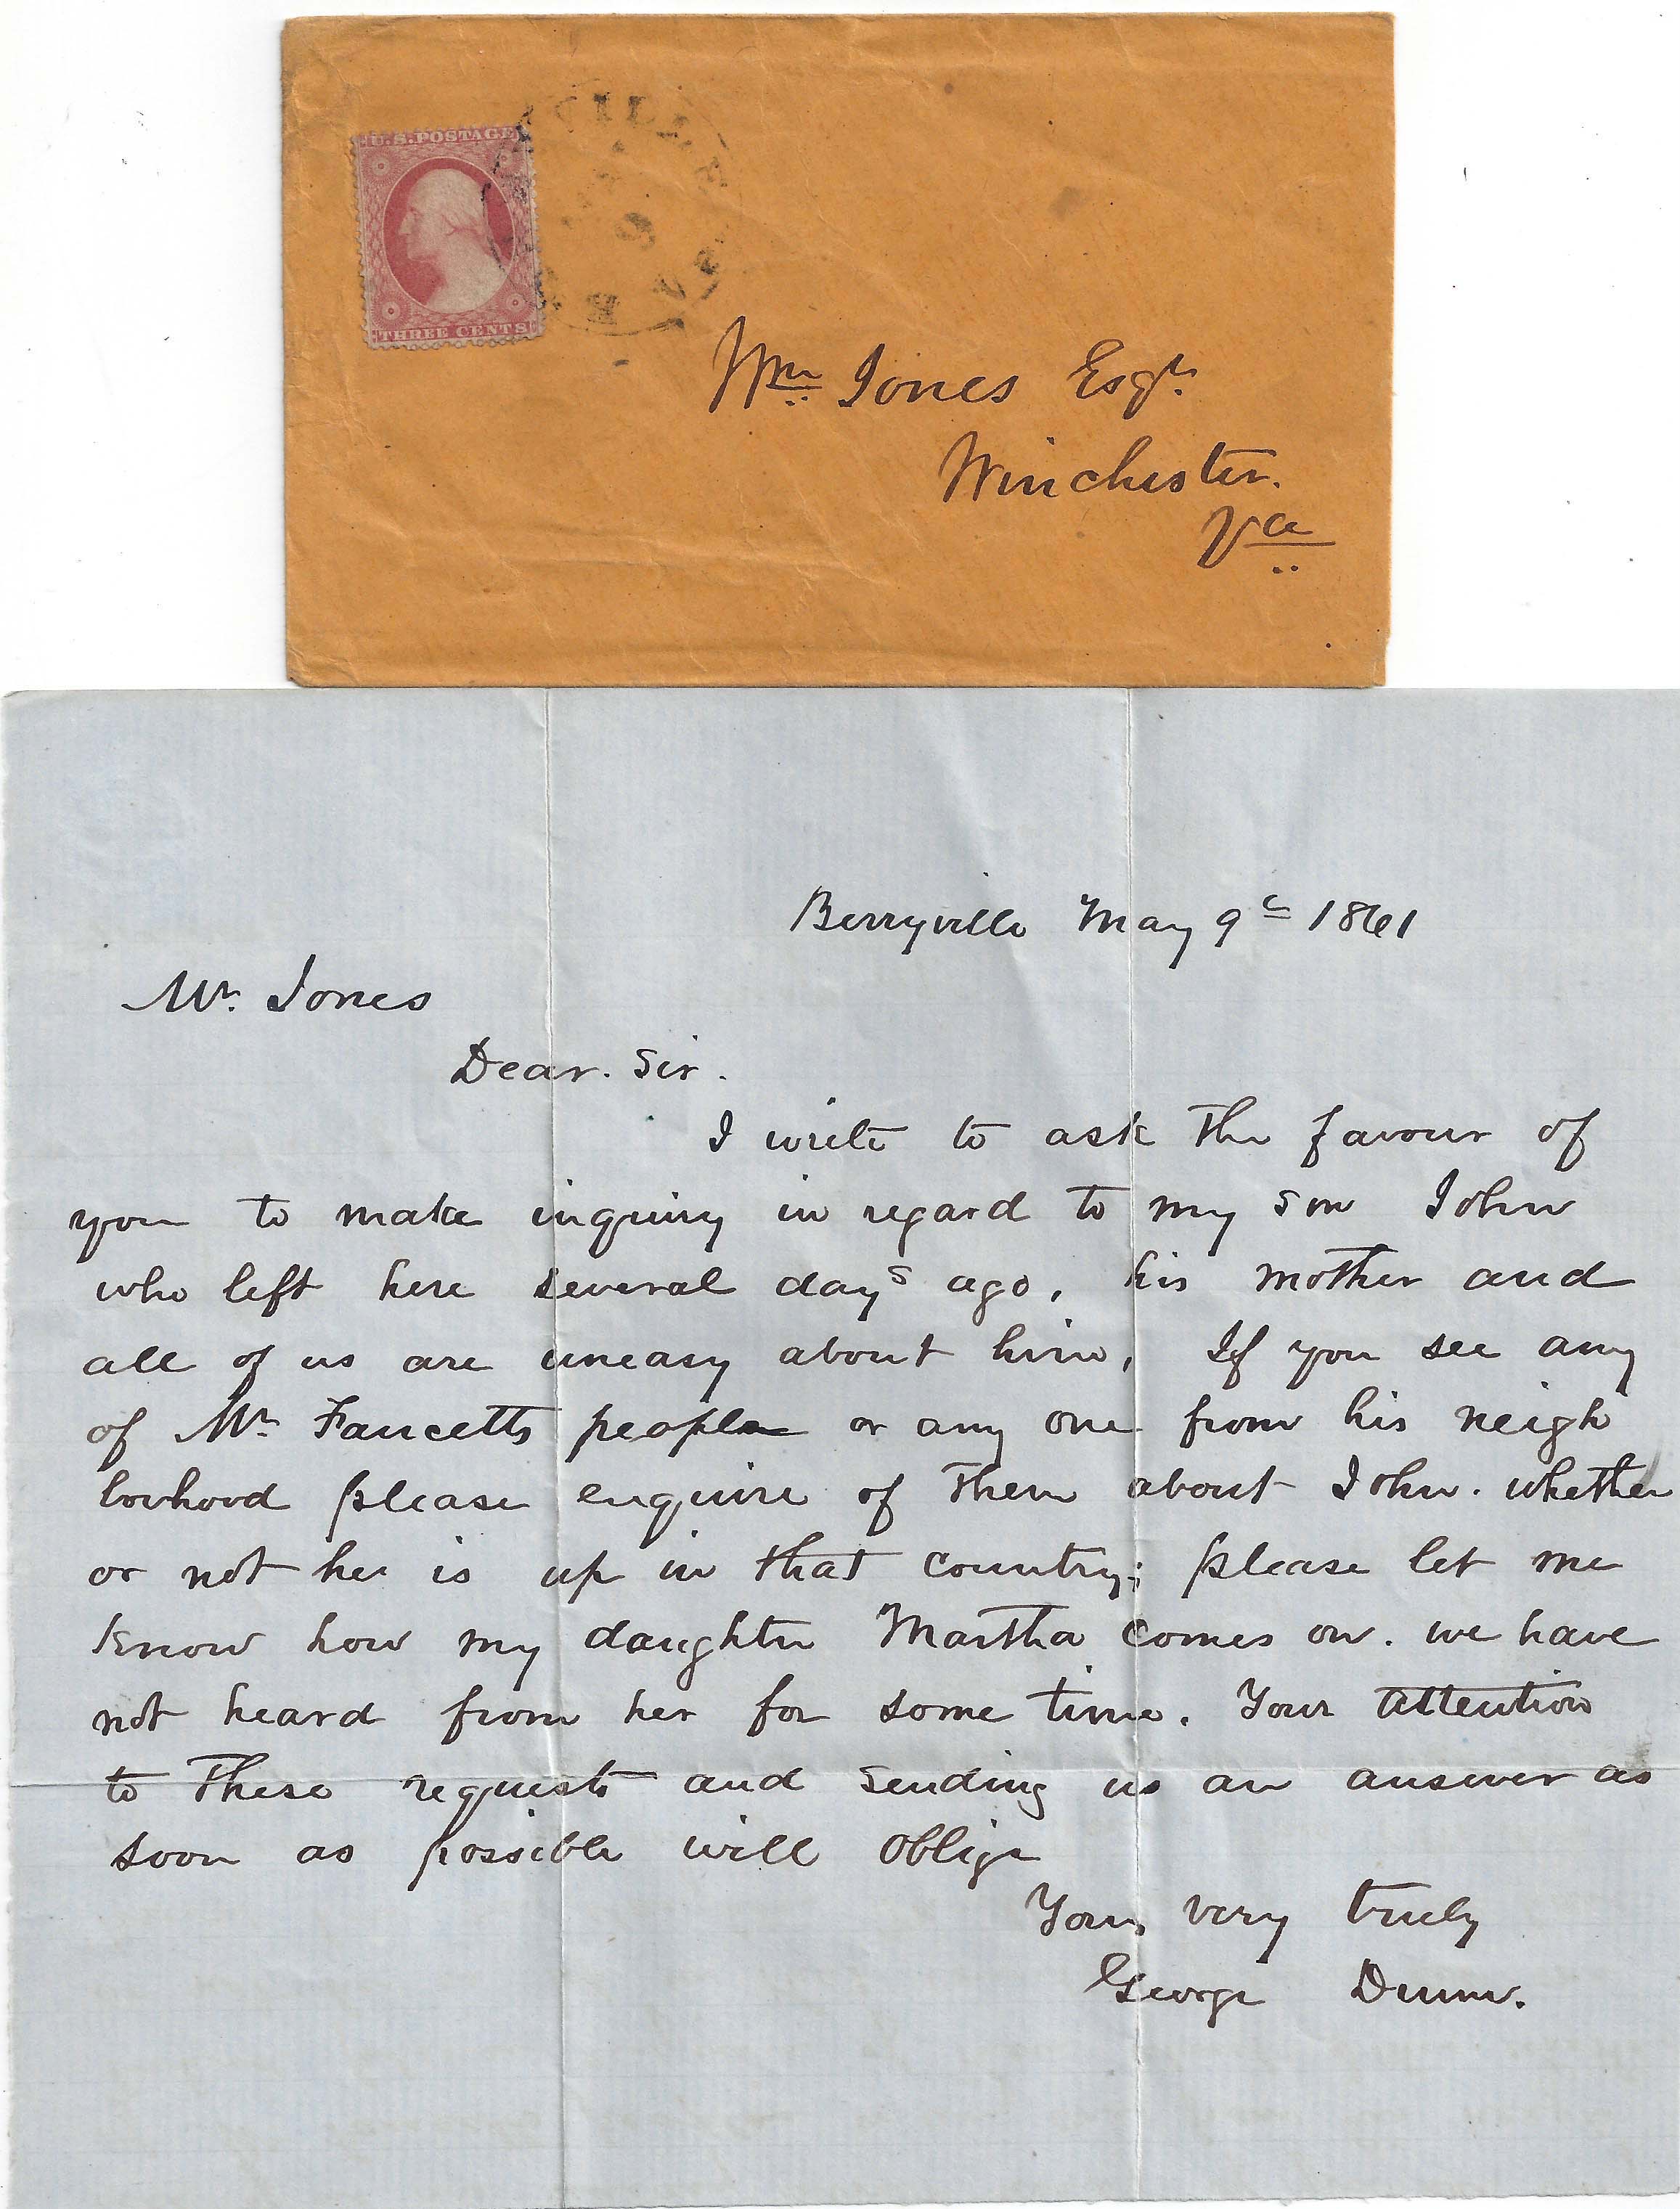 U.S. POSTAGE
THREE CENTS
Wm Jones Esqr.
Winchester.
Va
Berryville May 9th 1861
Mr. Jones
Dear. Sir.
I write to ask the favour of
you to make inquiry in regard to my son John
who left here several days ago, his mother and
all of us are uneasy about him, If you see any
of Mr. Faucetts people or any one from his neigh
borhood please enquire of them about John. whether
or not he is up in that country; please let me
know how my daughter Martha comes on. we have
not heard from her for some time. Your attention
to these requests and sending us an answer as
soon as possible will oblige
Yours very truly
George Dunn.